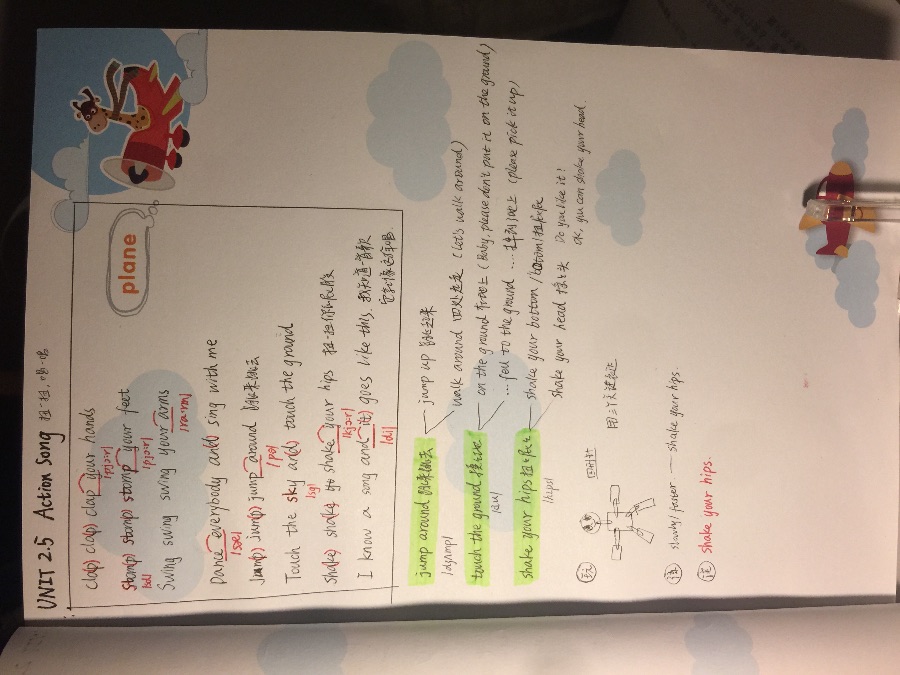 UNIT 2.5 Action Song 扭一扭,唱一唱
plane
Cla(p) cla(p) clap your hands
Stom(p) stom(p) stomp your feet
Swing swing swing your arms
Dance everybody an(d) sing with me
Jum(p) jum(p) jump around 跳来跳去
Touch the sky an(d) touch the ground
Sha(ke) sha(ke) shake your hips 扭一扭你的屁股
I know a song and it goes like this. 我知道一首歌
它就像这样唱
jump around 跳来跳去 — jump up 跳起来
walk around 四处走走 (Let's walk around)
touch the ground — on the ground 在地上 (Baby, please don't put it on the ground)
...fall to the ground ...掉到地上 (please pick it up)
shake your hips 扭扭屁股 — shake your bottom /bɒtəm/ 扭扭屁股
/hɪps/
shake your head 摇头 Do you like it?
or, you can shake your head.
玩
语 slowly/faster — shake your hips.
记 shake your hips.